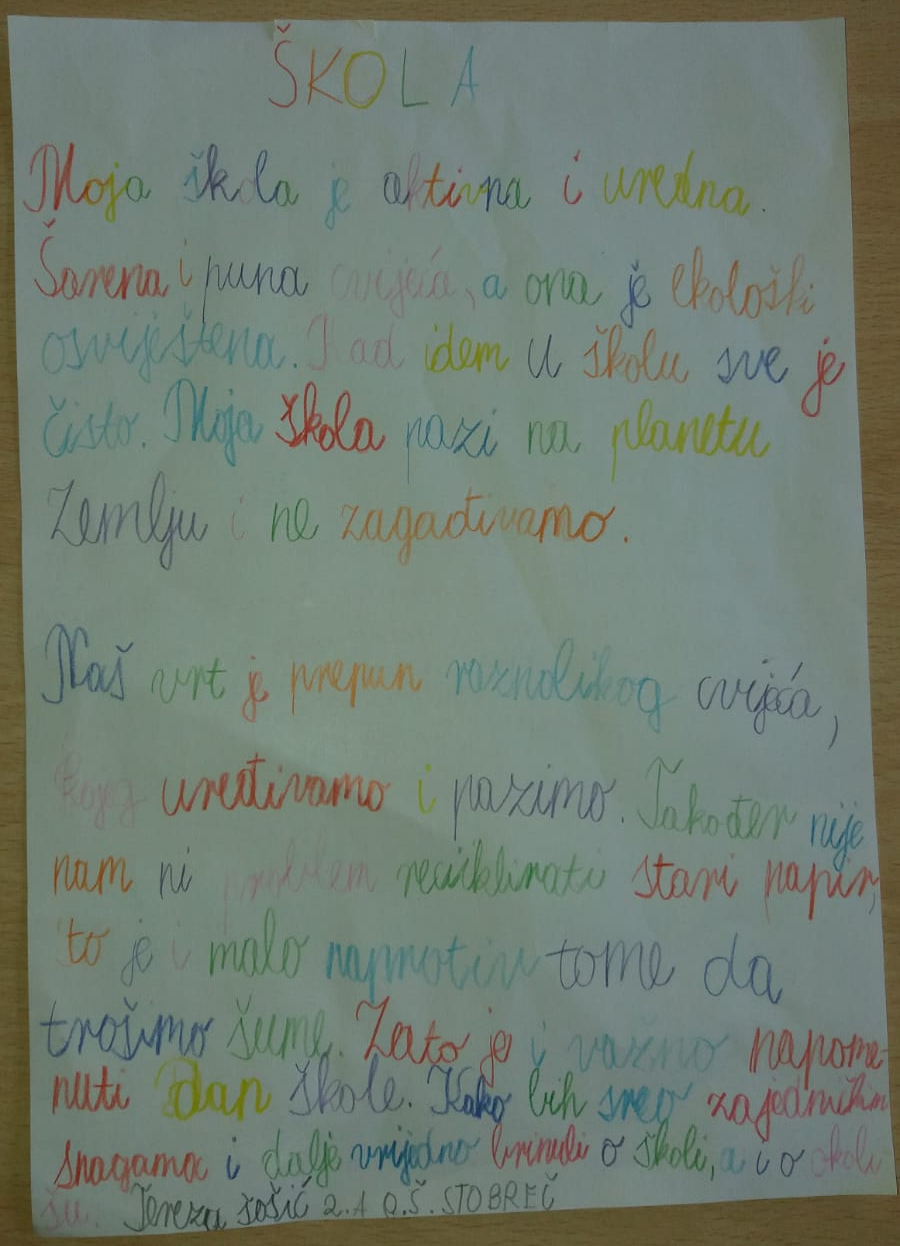 ŠKOLA
Moja škola je aktivna i uredna.
Šarena i puna cvijeća, a ona je ekološki
osviještena. Kad idem u školu sve je
čisto. Moja škola pazi na planetu
Zemlju i ne zagađivamo.
Naš vrt je prepun raznolikog cvijeća,
kojeg uređivamo i pazimo. Također nije
nam ni problem reciklirati stari papir,
to je i malo naprotiv tome da
trošimo šume. Zato je i važno napome-
nuti Dan škole. Kako bih sveo zajedničkim
snagama i dalje vrijedno brinuli o školi, a i o okoli
šu. Tereza Šošić 2.A O.Š. STOBREČ